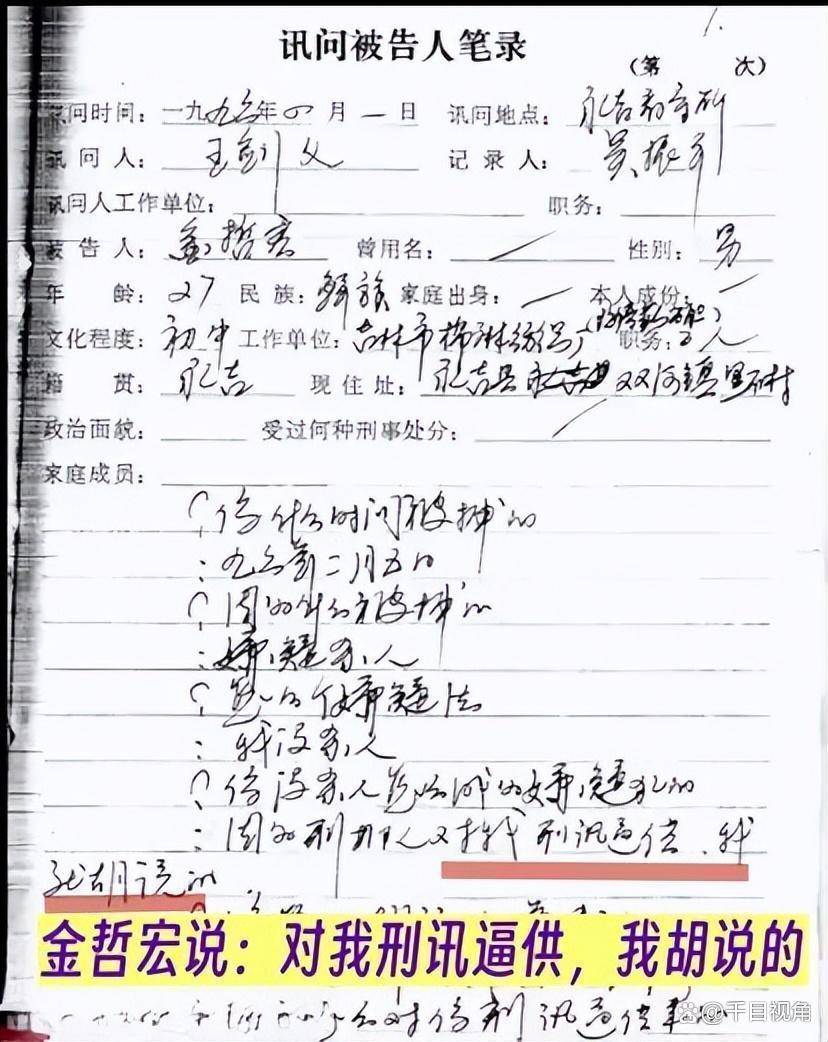 讯问被告人笔录
1.
(第 次)
讯问时间:一九九六年四月一日 讯问地点:永吉看守所
讯问人:王剑父 记录人:吴振
讯问人工作单位: 职务:
被告人:金哲宏 曾用名: 性别:男
年龄:27 民族:鲜族 家庭出身: 本人成份:
文化程度:初中 工作单位:吉林市 纺织厂 职务:工人
籍贯:永吉 现住址:永吉县 双河镇黑石村
政治面貌: 受过何种刑事处分:
家庭成员:
? 你什么时间被捕的
: 九六年二月五日
? 因为什么被捕的
: 嫌疑杀人
? 怎么个嫌疑法
: 我没杀人
? 你没杀人怎么成为嫌疑犯的
: 因为刑 人 对我刑讯逼供、我
就胡说的
金哲宏说:对我刑讯逼供,我胡说的
对你刑讯逼供
千目视角